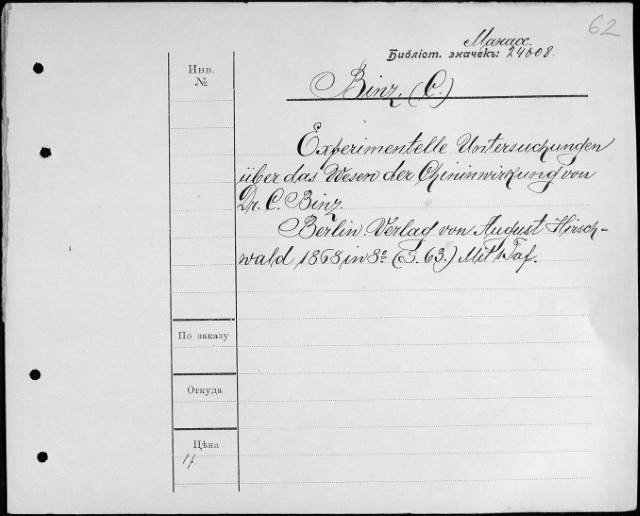 62
Манах.
Библіот. значекъ: 24608.
Инв.
№
Binz, (C.)
Experimentelle Untersuchungen
über das Wesen der Chininwirkung von
Dr. C. Binz.
Berlin. Verlag von August Hirsch-
wald 1868 in 8º (S. 63.) Mit 1 Taf.
По заказу
Откуда
Цѣна